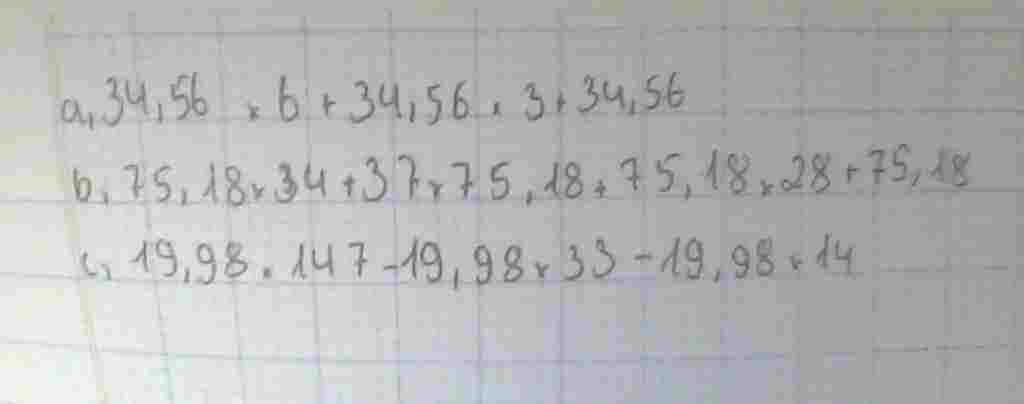 a, 34,56 x 6 + 34,56 x 3 + 34,56
b, 75,18 x 34 + 37 x 75,18 + 75,18 x 28 + 75,18
c, 19,98 x 147 - 19,98 x 33 - 19,98 x 14